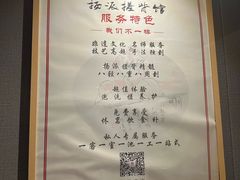 扬派搓背馆
服务特色
我们不一样
非遗文化 名师服务
技艺高超 手法独创
扬派搓背精髓
八轻八重八周到
超值体验
泡洗搓养护
免费享受
休息饮食补
私人专属服务
一客一室一池一工一站式